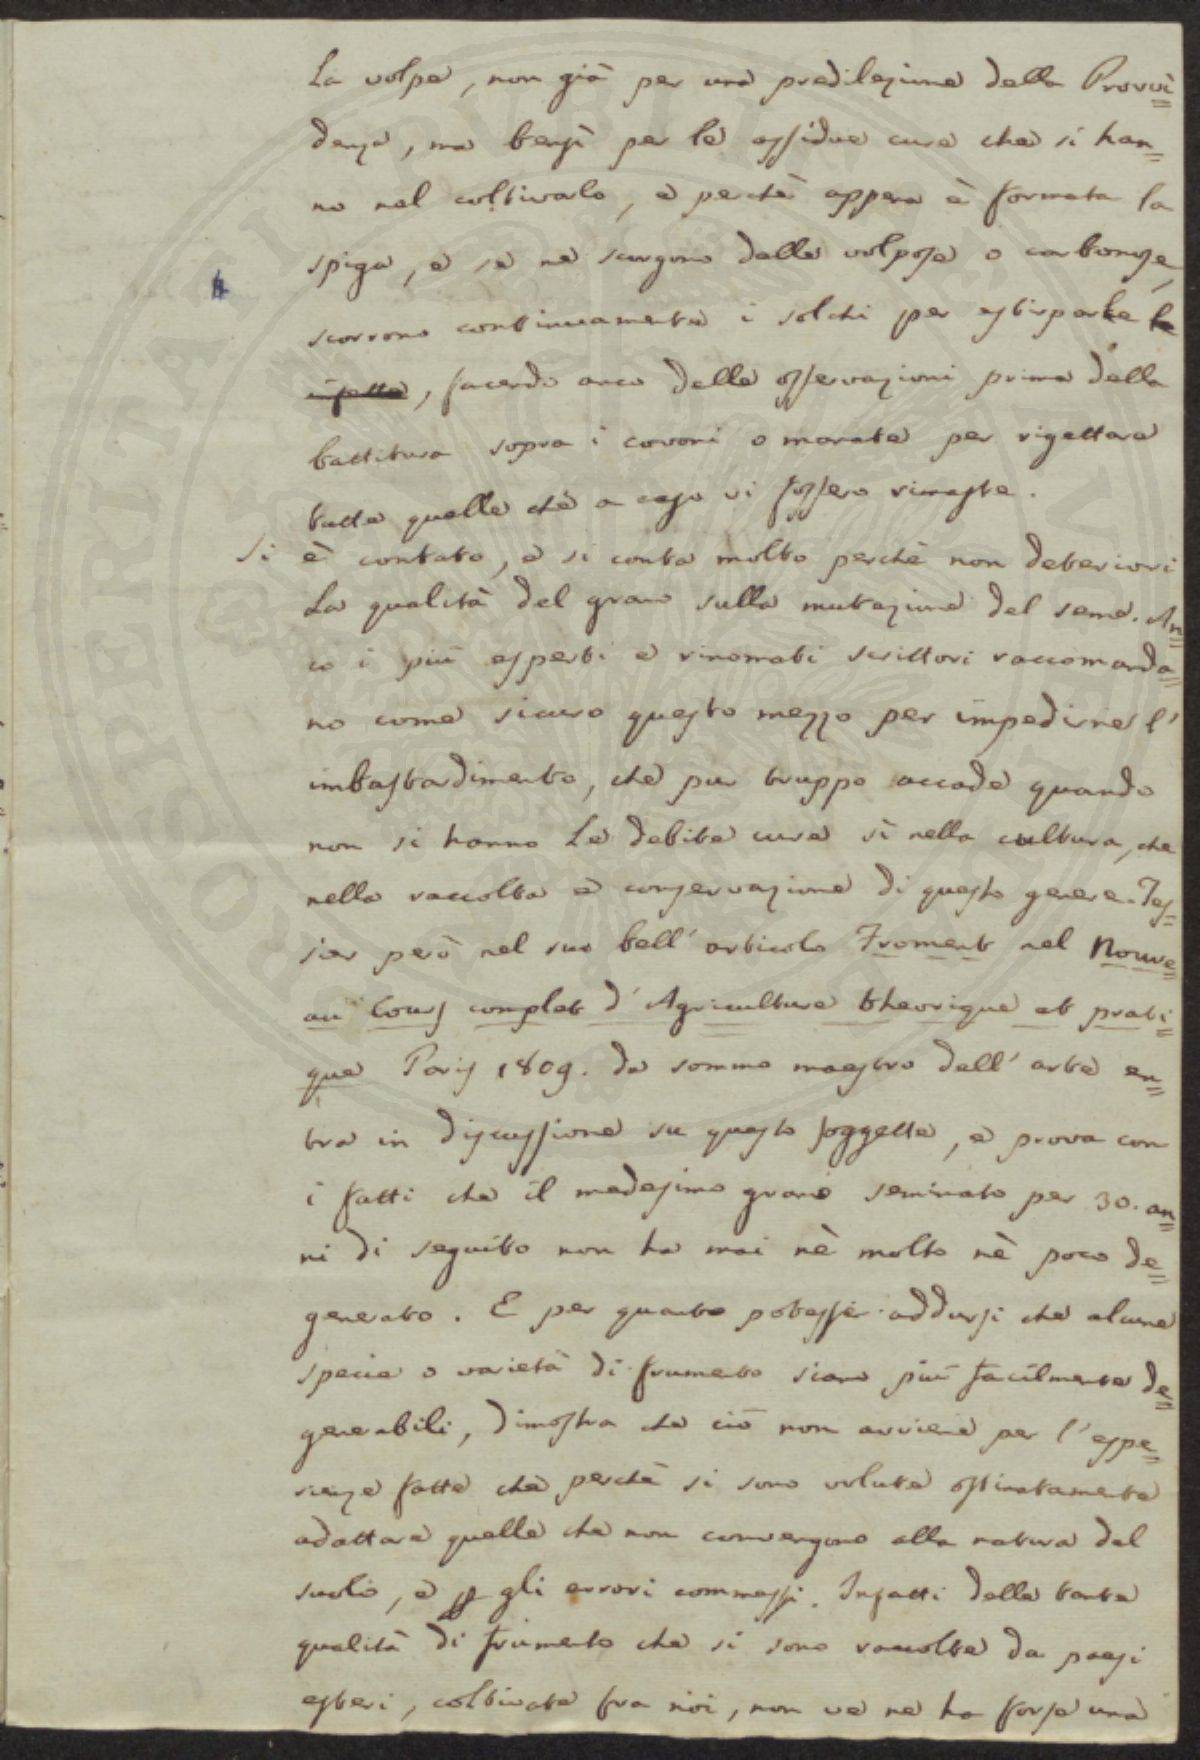 la volpe, non già per una predilezione della Provvi=
denza, ma bensì per le assidue cure che si han=
no nel coltivarlo, e perchè appena è formata la
spiga, e se ne scorgono delle volpose o carbonose,
scorrono continuamente i solchi per estirparle le
infette, facendo anco delle osservazioni prima della
battitura sopra i covoni o manate per rigettare
tutte quelle che a caso vi fossero rimaste.
Si è contato, e si conta molto perchè non deteriori
la qualità del grano sulla mutazione del seme. An=
co i più esperti e rinomati scrittori raccomanda=
no come sicuro questo mezzo per impedirne l'
imbastardimento, che pur truppo accade quando
non si hanno le debite cure sì nella cultura, che
nella raccolta e conservazione di questo genere. Tes=
sier però nel suo bell'articolo Froment nel Nouve=
au Cours complet d'Agriculture theorique et prati=
que Paris 1809. da sommo maestro dell'arte en=
tra in discussione su questo soggetto, e prova con
i fatti che il medesimo grano seminato per 30. an=
ni di seguito non ha mai nè molto nè poco de=
generato. E per quanto potesse addursi che alcune
specie o varietà di frumento siano più facilmente de=
generabili, dimostra che ciò non avviene per l'espe=
rienze fatte che perchè si sono volute ostinatamente
adattare quelle che non convengono alla natura del
suolo, e p gli errori commessi. Infatti delle tante
qualità di frumento che si sono raccolte da paesi
esteri, coltivate fra noi, non ve ne ha forse una